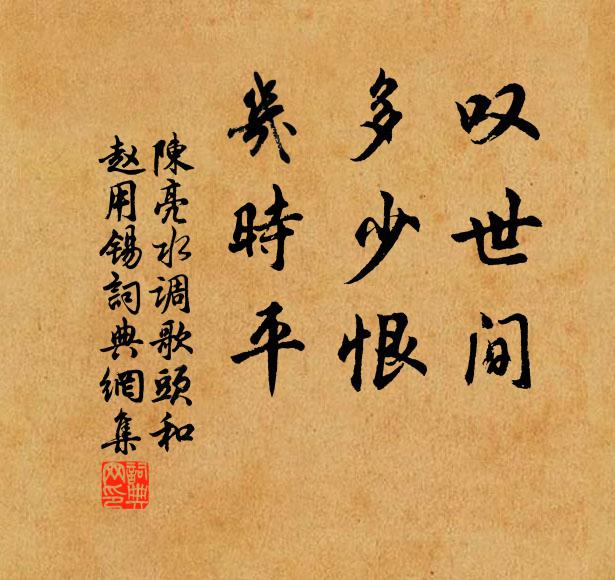 叹世间
多少恨
几時平
陳亮水调歌頭和
赵用锡詞典網集
詞典
网印